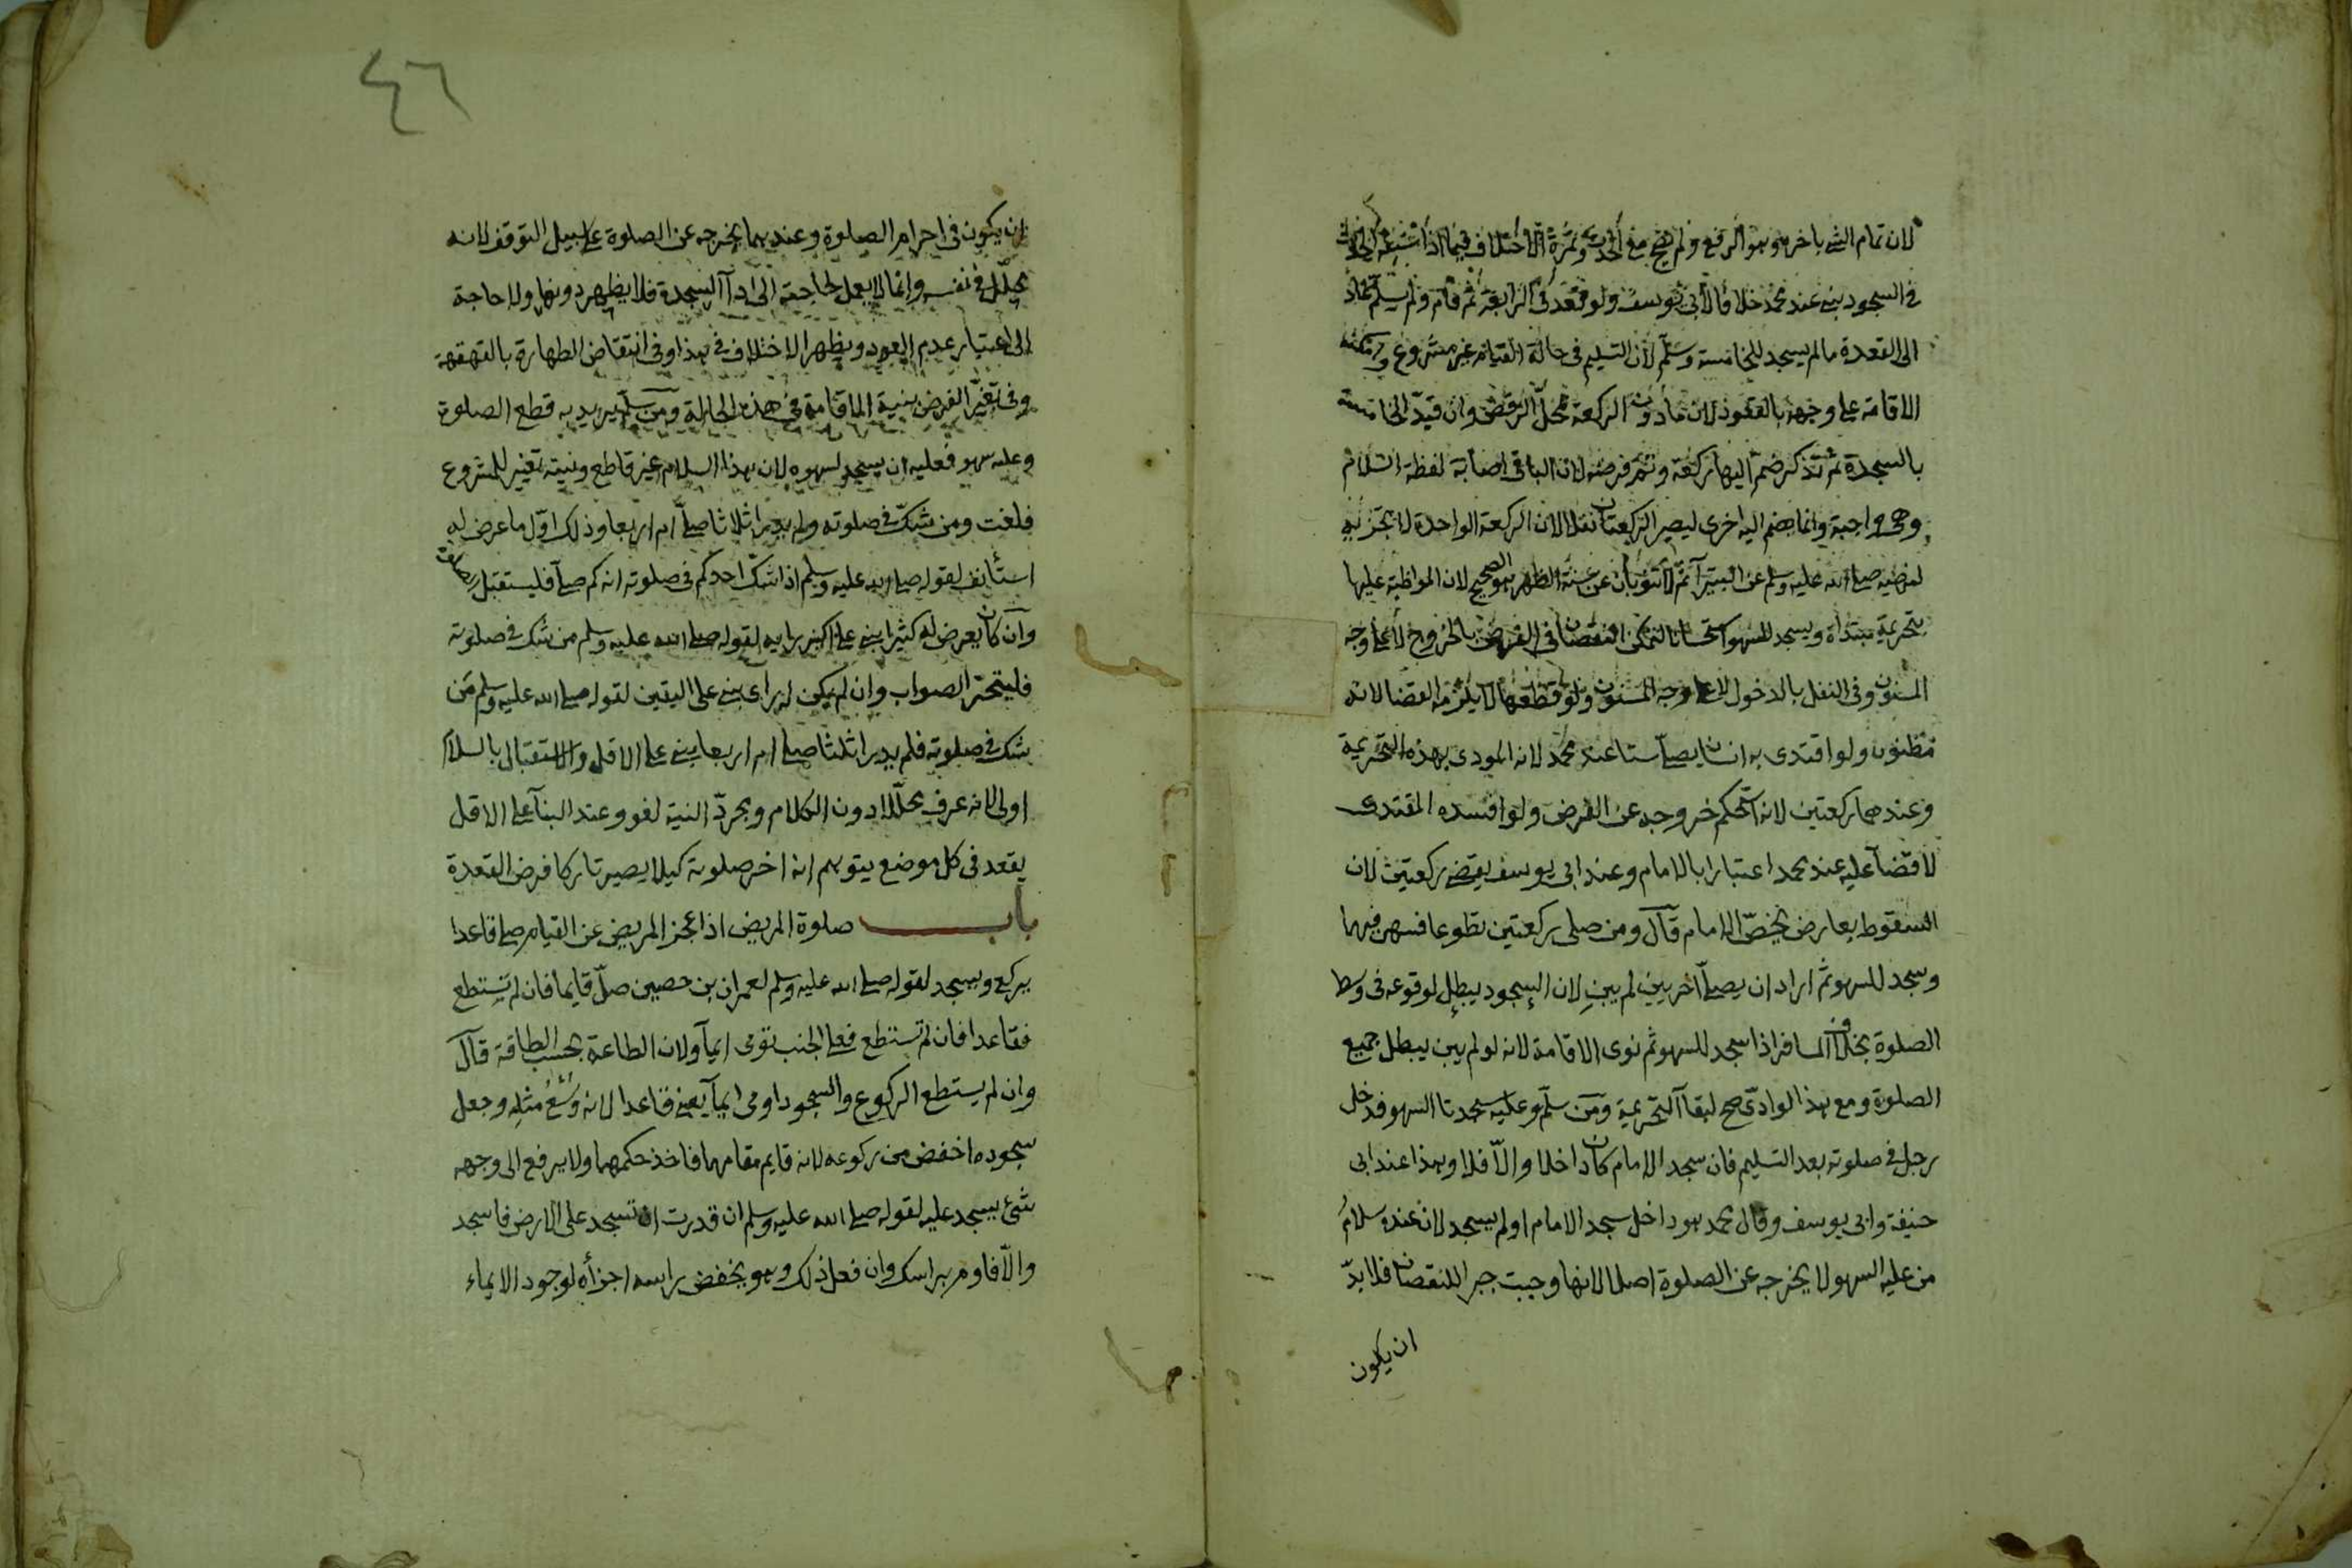 لان تمام الشئ باخره وهو الرفع ولم يصح مع الحدث وثمرة الاختلاف فيما اذا سبقه الحدث
فى السجود بنى عند محمد خلافا لابى يوسف ولو قعد فى الرابعة ثم قام ولم يسلم عاد
الى القعدة ما لم يسجد للخامسة وسلم لان التسليم فى حالة القيام غير مشروع وامكنه
الاقامة على وجهه بالقعود لان ما دون الركعة محل الرفض وان قيد الخامسة
بالسجدة ثم تذكر ضم اليها ركعة وتم فرضه لان الباقى اصابة لفظة السلام
وهى واجبة وانما يضم اليه اخرى ليصير الركعتان نفلا لان الركعة الواحدة لا تجزيه
لنهيه صلى الله عليه وسلم عن البتيرا ثم لا تنوبان عن سنة الظهر هو الصحيح لان المواظبة عليها
بتحريمة مبتدأة ويسجد للسهو استحسانا لتمكن النقصان فى الفرض بالخروج لا على وجه
المسنون وفى النفل بالدخول لا على وجه المسنون ولو قطعها لا يلزمه القضا لانه
مظنون ولو اقتدى به انسان يصلى ستا عند محمد لانه المودى بهذه التحريمة
وعندهما ركعتين لانه استحكم خروجه عن الفرض ولو افسده المقتدى
لا قضآ عليه عند محمد اعتبارا بالامام وعند ابى يوسف يقضى ركعتين لان
السقوط بعارض يخصّ الامام قال ومن صلى ركعتين تطوعا فسهى فيهما
وسجد للسهو ثم اراد ان يصلى اخريين لم يبن لان السجود يبطل لوقوعه فى وسط
الصلوة بخلاف المسافر اذا سجد للسهو ثم نوى الاقامة لانه لو لم يبن يبطل جميع
الصلوة ومع هذا لو ادّى صح لبقآ التحريمة ومن سلّم وعليه سجدتا السهو فدخل
رجل فى صلوته بعد التسليم فان سجد الامام كان داخلا والّا فلا وهذا عند ابى
حنيفة وابى يوسف وقال محمد هو داخل سجد الامام اولم يسجد لان عنده سلامُ
من عليه السهو لا يخرجه عن الصلوة اصلا لانها وجبت جبرا للنقصان فلا بدّ
ان يكون
٤٦
ان يكون فى احرام الصلوة وعندهما يخرجه عن الصلوة على سبيل التوقف لانه
محلّل فى نفسه وانما لا يعمل لحاجته الى ادآ السجدة فلا يظهر دونها ولا حاجة
الى اعتبار عدم العود ويظهر الاختلاف فى هذا وفى انتقاض الطهارة بالقهقهة
وفى تغيّر الفرض بنية الاقامة فى هذه الحالة ومن سلم يريد به قطع الصلوة
وعليه سهو فعليه ان يسجد لسهوه لان هذا السلام غير قاطع ونيته تغيير للمشروع
فلغت ومن شكّ فى صلوته ولم يدر اثلاثا صلى ام اربعا وذلك اوّل ما عرض له
استأنف لقوله صلى الله عليه وسلم اذا شكّ احدكم فى صلوته انه كم صلى فليستقبل الصلوة
وان كان يعرض له كثيرا بنى على اكبر رايه لقوله صلى الله عليه وسلم من شك فى صلوته
فليتحر الصواب وان لم يكن له راى بنى على اليقين لقوله صلى الله عليه وسلم من
شك فى صلوته فلم يدر اثلثا صلى ام اربعا بنى على الاقل والاستقبال بالسلام
اولى لانه عرف محلّلا دون الكلام ومجردّ النية لغو وعند البنآ على الاقل
يقعد فى كل موضع يتوهم انه اخر صلوته كيلا يصير تاركا فرض القعدة
باب صلوة المريض اذا عجز المريض عن القيام صلى قاعدا
يركع ويسجد لقوله صلى الله عليه وسلم لعمران بن حصين صلّ قايما فان لم تستطع
فقاعدا فان لم تستطع فعلى الجنب تومى ايمآ ولان الطاعة بحسب الطاقة قال
وان لم يستطع الركوع والسجود اومى ايمآ يعنى قاعدا لانه وُسْعُ مثلِه وجعل
سجوده اخفض من ركوعه لانه قايم مقامهما فاخذ حكمهما ولا يرفع الى وجهه
شئ يسجد عليه لقوله صلى الله عليه وسلم ان قدرت ان تسجد على الارض فاسجد
والّا فاوم براسك وان فعل ذلك وهو يخفض راسه اجزأه لوجود الايماء